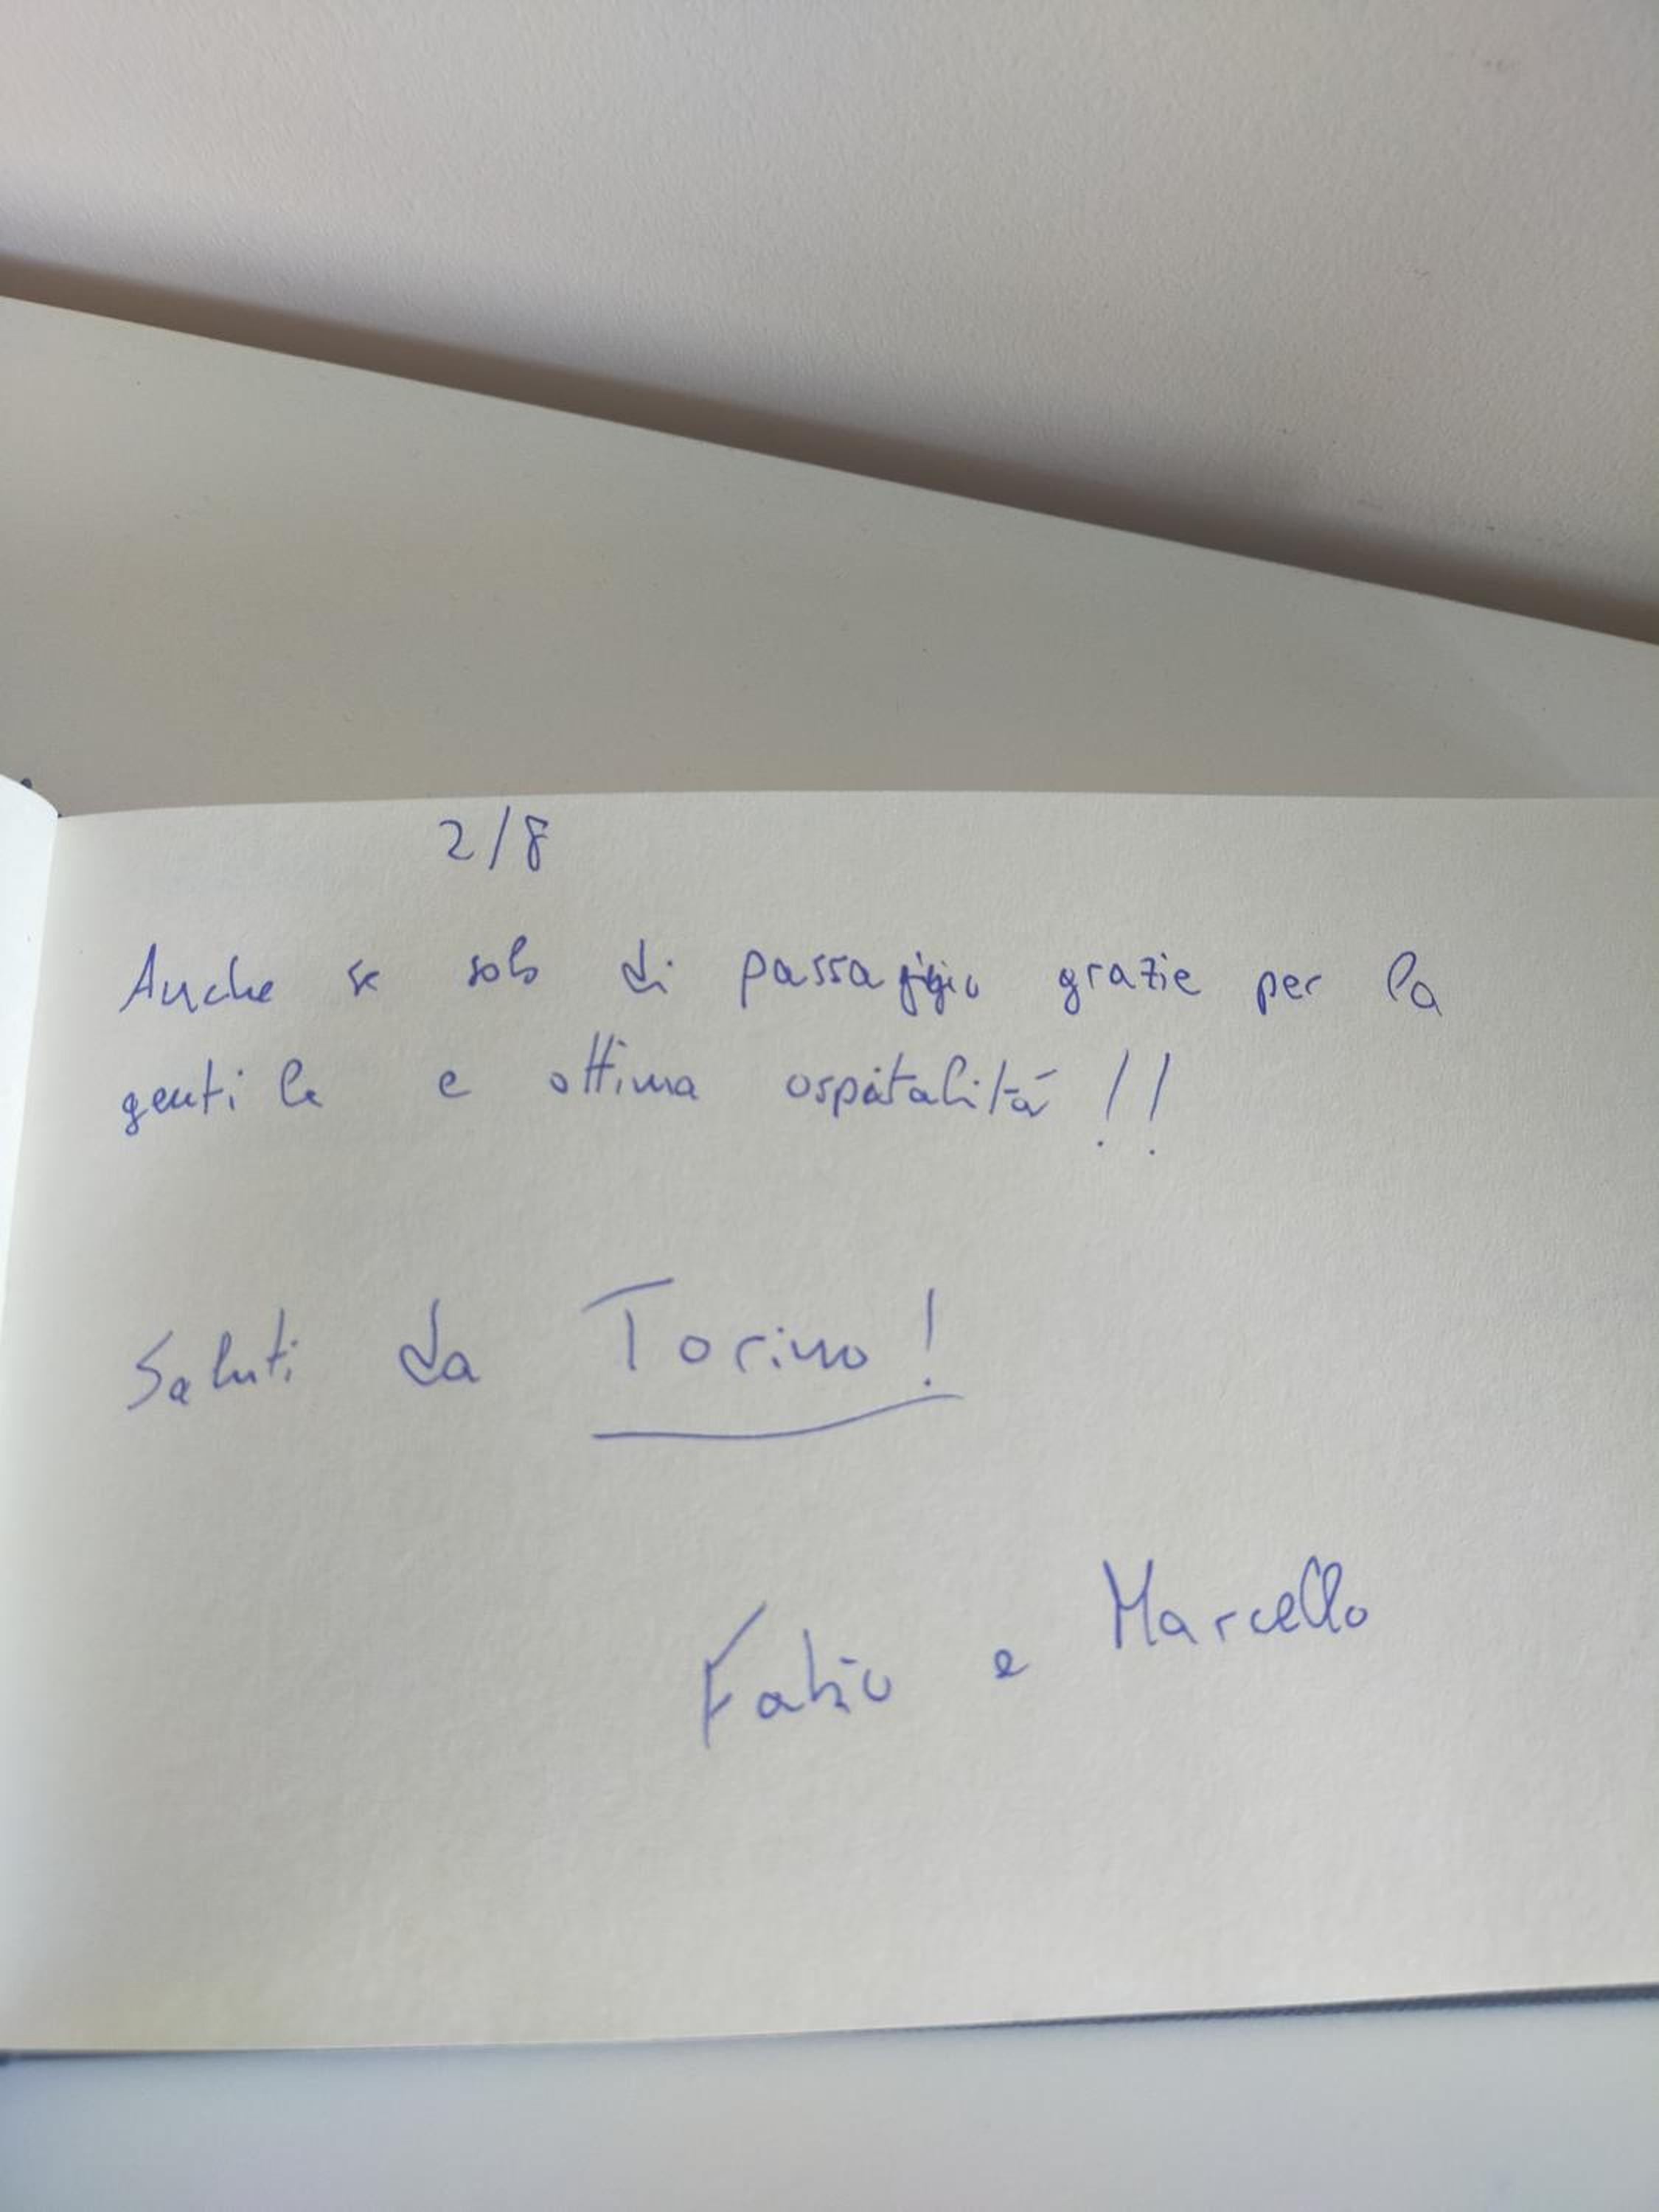 2/8
Anche se solo di passaggio grazie per la
gentile e ottima ospitalità!!
Saluti da Torino!
Fabio e Marcello